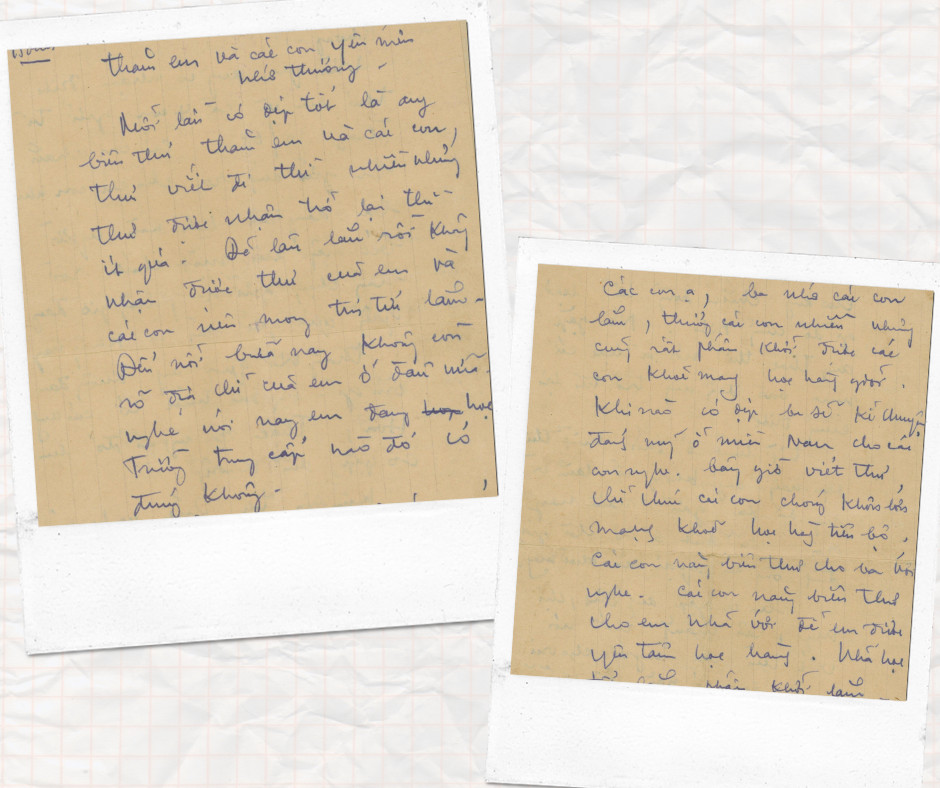 thăm em và các con yêu mến
nhớ thương -
Mỗi lần có dịp tốt là anh
biên thư thăm em và các con,
thư viết đi thì nhiều nhưng
thư được nhận hồ lại thì
ít quá. Đã lâu lắm rồi không
nhận được thư của em và
các con nên mong lắm -
Đến nỗi bữa nay không còn
rõ địa chỉ của em ở đâu nữa.
nghe nói nay em đang học
trường trung cấp nào đó có
đúng không.
Các con ạ, ba nhớ các con
lắm, thương các con nhiều nhưng
cũng rất phấn khởi được các
con khoẻ mạnh học hành giỏi.
Khi nào có dịp ba sẽ kể chuyện
đánh mỹ ở miền Nam cho các
con nghe. bây giờ viết thư
chỉ chúc các con chóng khôn lớn
mạnh khoẻ học hành tiến bộ.
Các con năng biên thư cho ba với
nghe. Các con năng biên thư
cho em Nhã với để em được
yên tâm học hành. Nhã học
phấn khởi lắm